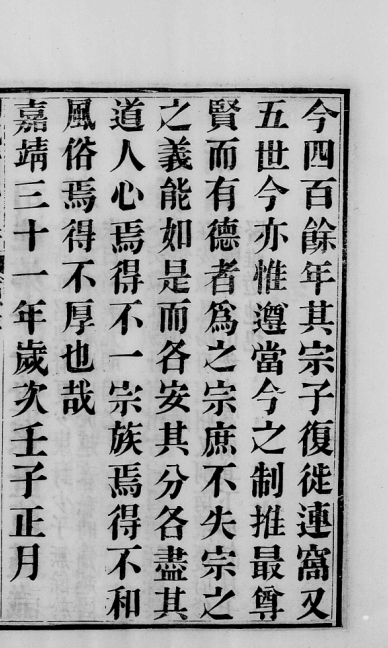 今四百餘年其宗子復徙連窩又
五世今亦惟遵當今之制推最尊
賢而有德者爲之宗庶不失宗之
之義能如是而各安其分各盡其
道人心焉得不一宗族焉得不和
風俗焉得不厚也哉
嘉靖三十一年歲次壬子正月